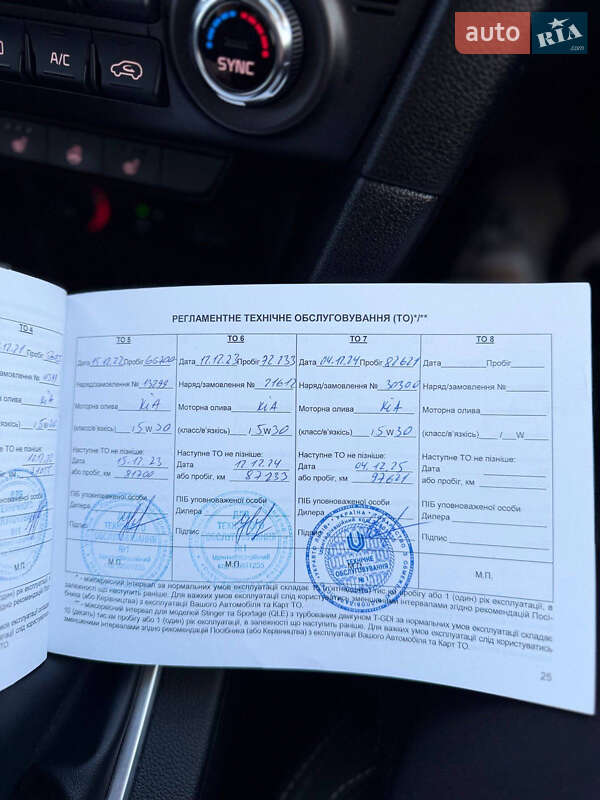 auto RIA .com
A/C
SYNC
РЕГЛАМЕНТНЕ ТЕХНІЧНЕ ОБСЛУГОВУВАННЯ (ТО)*/**
ТО 5 ТО 6 ТО 7 ТО 8
Дата 15.12.22 Пробіг Дата 12.12.23 Пробіг 77.233 Дата 04.12.24 Пробіг 87621 Дата Пробіг
Наряд/замовлення № 13299 Наряд/замовлення № 21612 Наряд/замовлення № 30300 Наряд/замовлення №
Моторна олива KiA Моторна олива KiA Моторна олива KiA Моторна олива
(класс/в'язкість) /5W30 (класс/в'язкість) /5W30 (класс/в'язкість) /5W30 (класс/в'язкість) / W
Наступне ТО не пізніше: Наступне ТО не пізніше: Наступне ТО не пізніше: Наступне ТО не пізніше:
Дата 15.12.23 Дата 12.12.24 Дата 04.12.25 Дата
або пробіг, км 81700 або пробіг, км 87233 або пробіг, км 97621 або пробіг, км
ПІБ уповноваженої особи ПІБ уповноваженої особи ПІБ уповноваженої особи
Дилера Дилера Дилера
Підпис Підпис Підпис
М.П. М.П. М.П.
ТЕХНІЧНЕ
ОБСЛУГОВУВАННЯ
УКРАЇНА
міжсервісний інтервал за нормальних умов експлуатації складає
тис.км пробігу або 1 (один) рік експлуатації, в
залежності що наступить раніше. Для важких умов експлуатації слід користуватись зменшеними інтервалами згідно рекомендацій Посібника (або Керівництва) з експлуатації Вашого Автомобіля та Карт ТО.
міжсервісний інтервал для моделей Stinger та Sportage (QLE) з турбованим двигуном T-GDI за нормальних умов експлуатації складає
10 (десять) тис.км пробігу або 1 (один) рік експлуатації, в залежності що наступить раніше. Для важких умов експлуатації слід користуватись
зменшеними інтервалами згідно рекомендацій Посібника (або Керівництва) з експлуатації Вашого Автомобіля та Карт ТО.
25